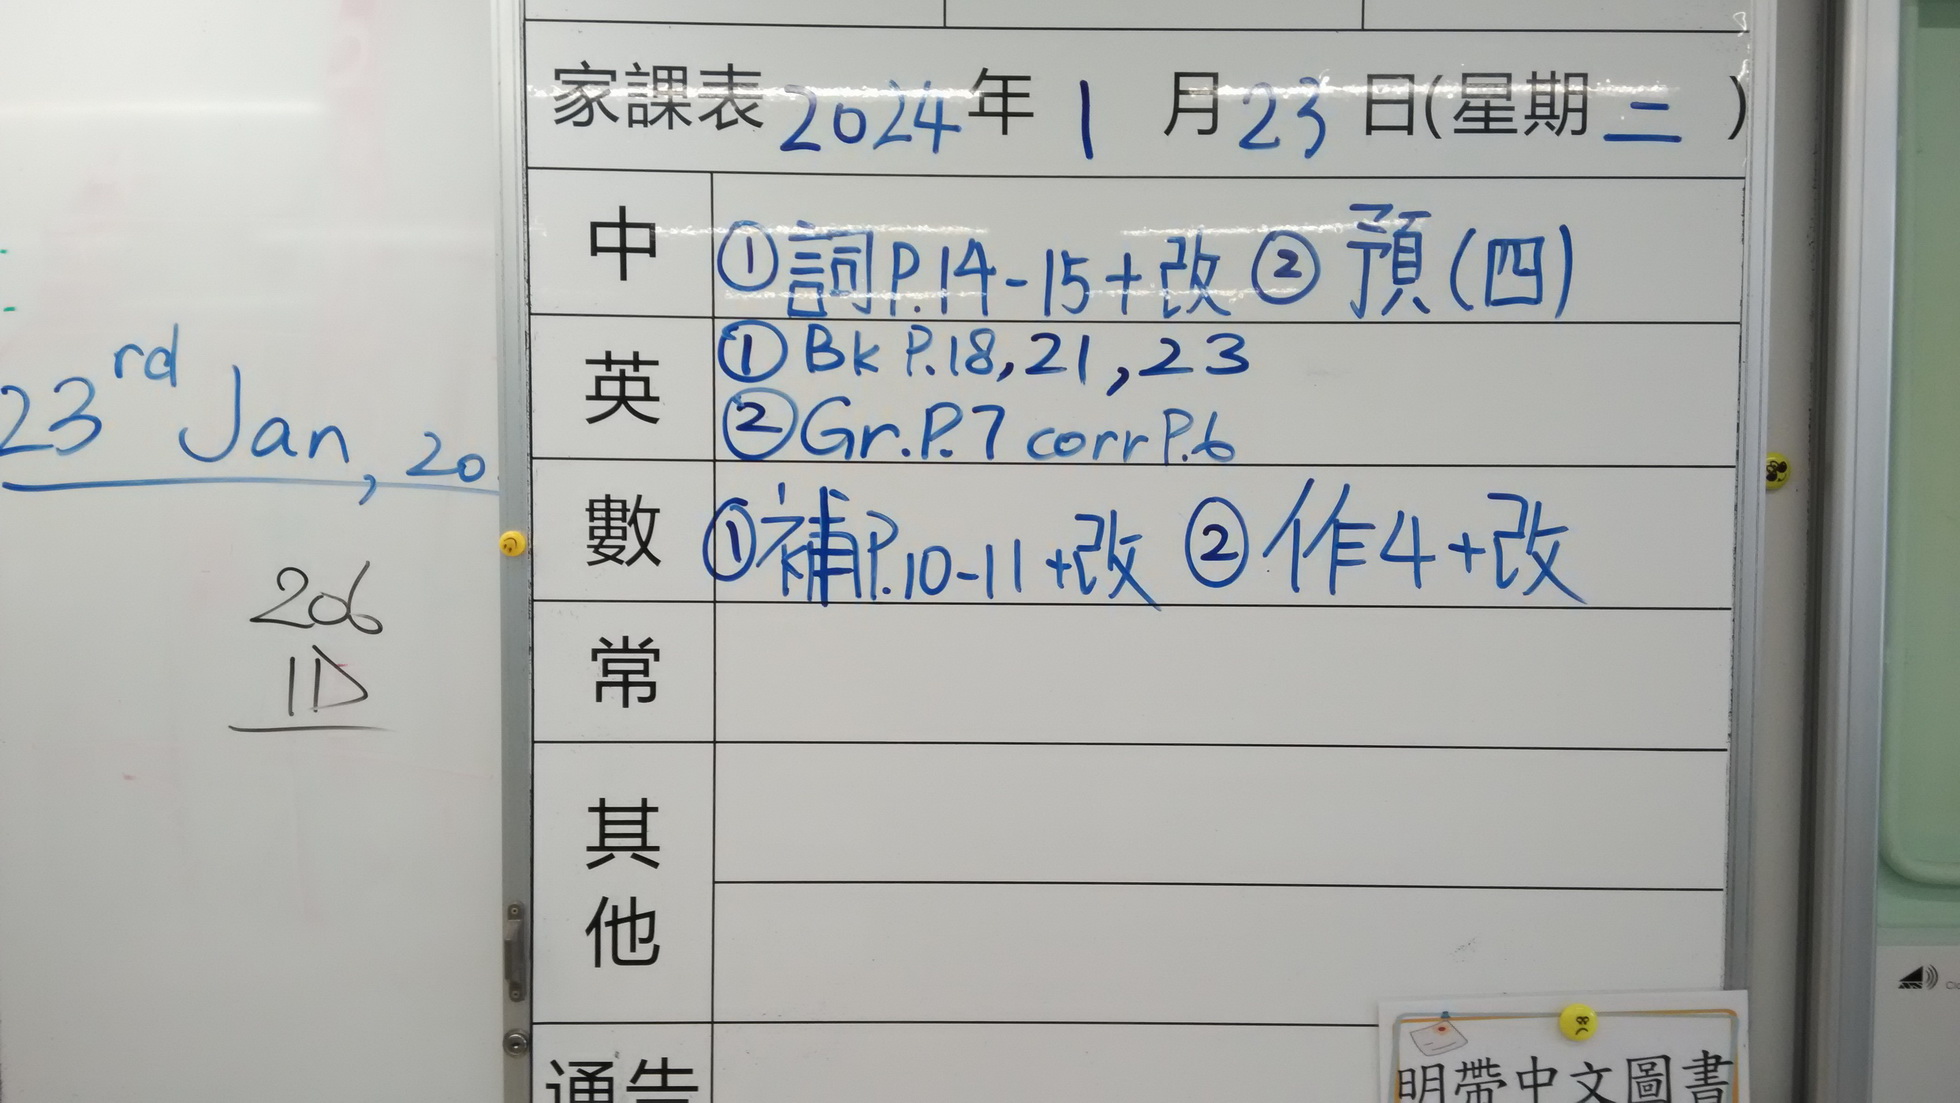 家課表 2024年 1 月 23 日(星期 二 )
中 ① 詞 P.14-15+改 ② 預(四)
英 ① Bk P.18,21,23
② Gr.P.7 corr P.6
數 ① 補P.10-11+改 ② 作4+改
常
其他
通告
明帶中文圖書
23rd Jan, 20
206
1D